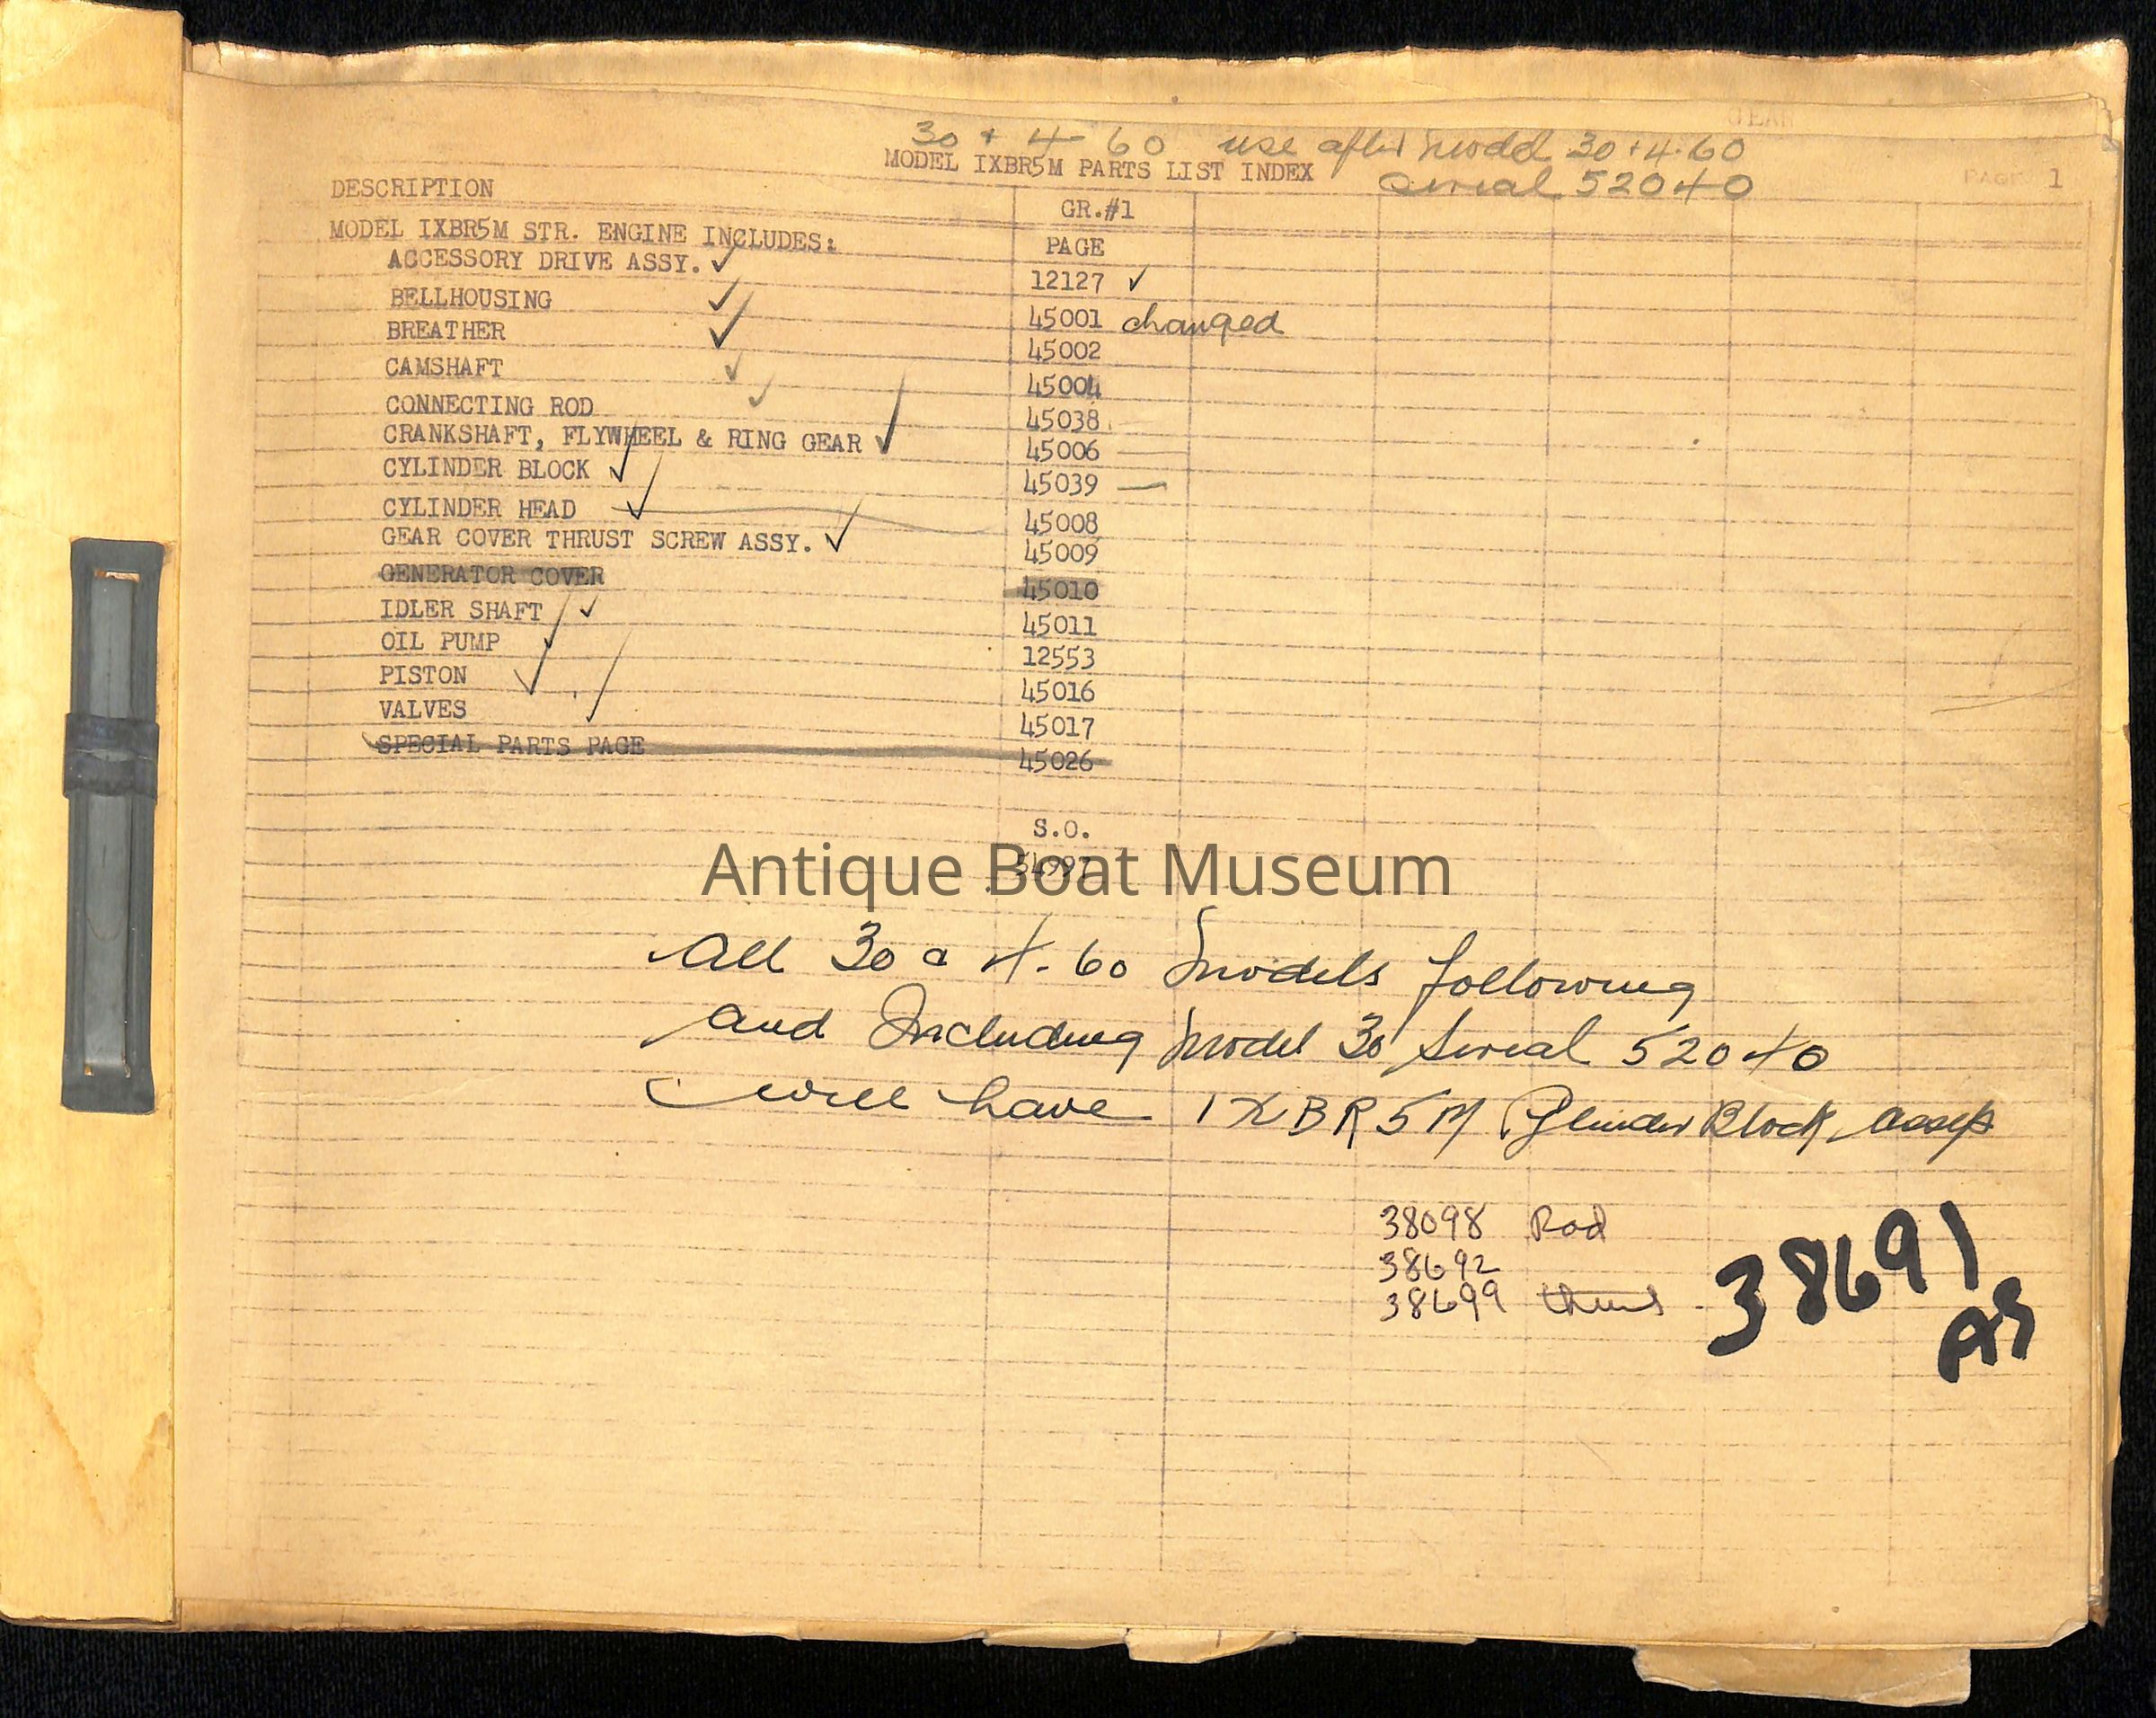 30 + 4-60 use after Model 30+4-60
MODEL IXBR5M PARTS LIST INDEX serial 52040
PAGE 1
DESCRIPTION GR.#1
MODEL IXBR5M STR. ENGINE INCLUDES: PAGE
ACCESSORY DRIVE ASSY. ✓ 12127 ✓
BELLHOUSING ✓ 45001 changed
BREATHER ✓ 45002
CAMSHAFT ✓ 45004
CONNECTING ROD ✓ 45038
CRANKSHAFT, FLYWHEEL & RING GEAR ✓ 45006
CYLINDER BLOCK ✓ 45039 —
CYLINDER HEAD ✓ 45008
GEAR COVER THRUST SCREW ASSY. ✓ 45009
GENERATOR COVER 45010
IDLER SHAFT ✓ 45011
OIL PUMP ✓ 12553
PISTON ✓ 45016
VALVES ✓ 45017
SPECIAL PARTS PAGE 45026
S.O.
54997
Antique Boat Museum
All 30 & 4-60 Models following
and Including Model 30 Serial 52040
will have IXBR5M Cylinder Block assys
38098 Rod
38692
38699
38691
AS